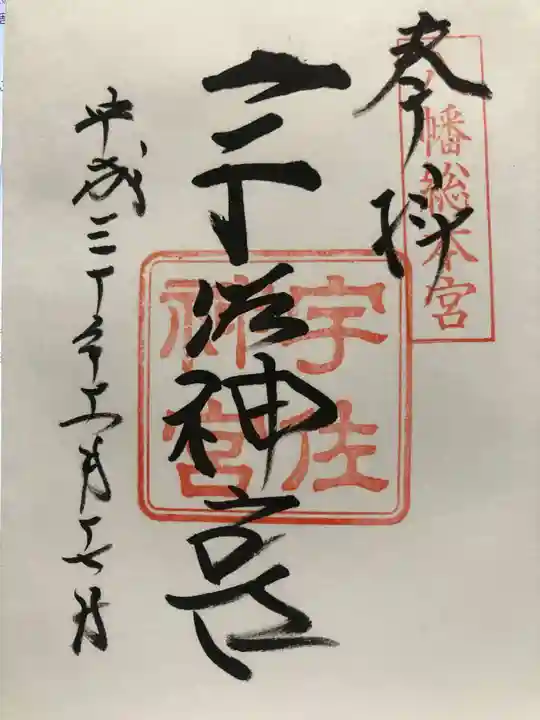 八幡総本宮
奉拝
宇佐神宮
宇佐
神宮
平成三十年十一月十七日